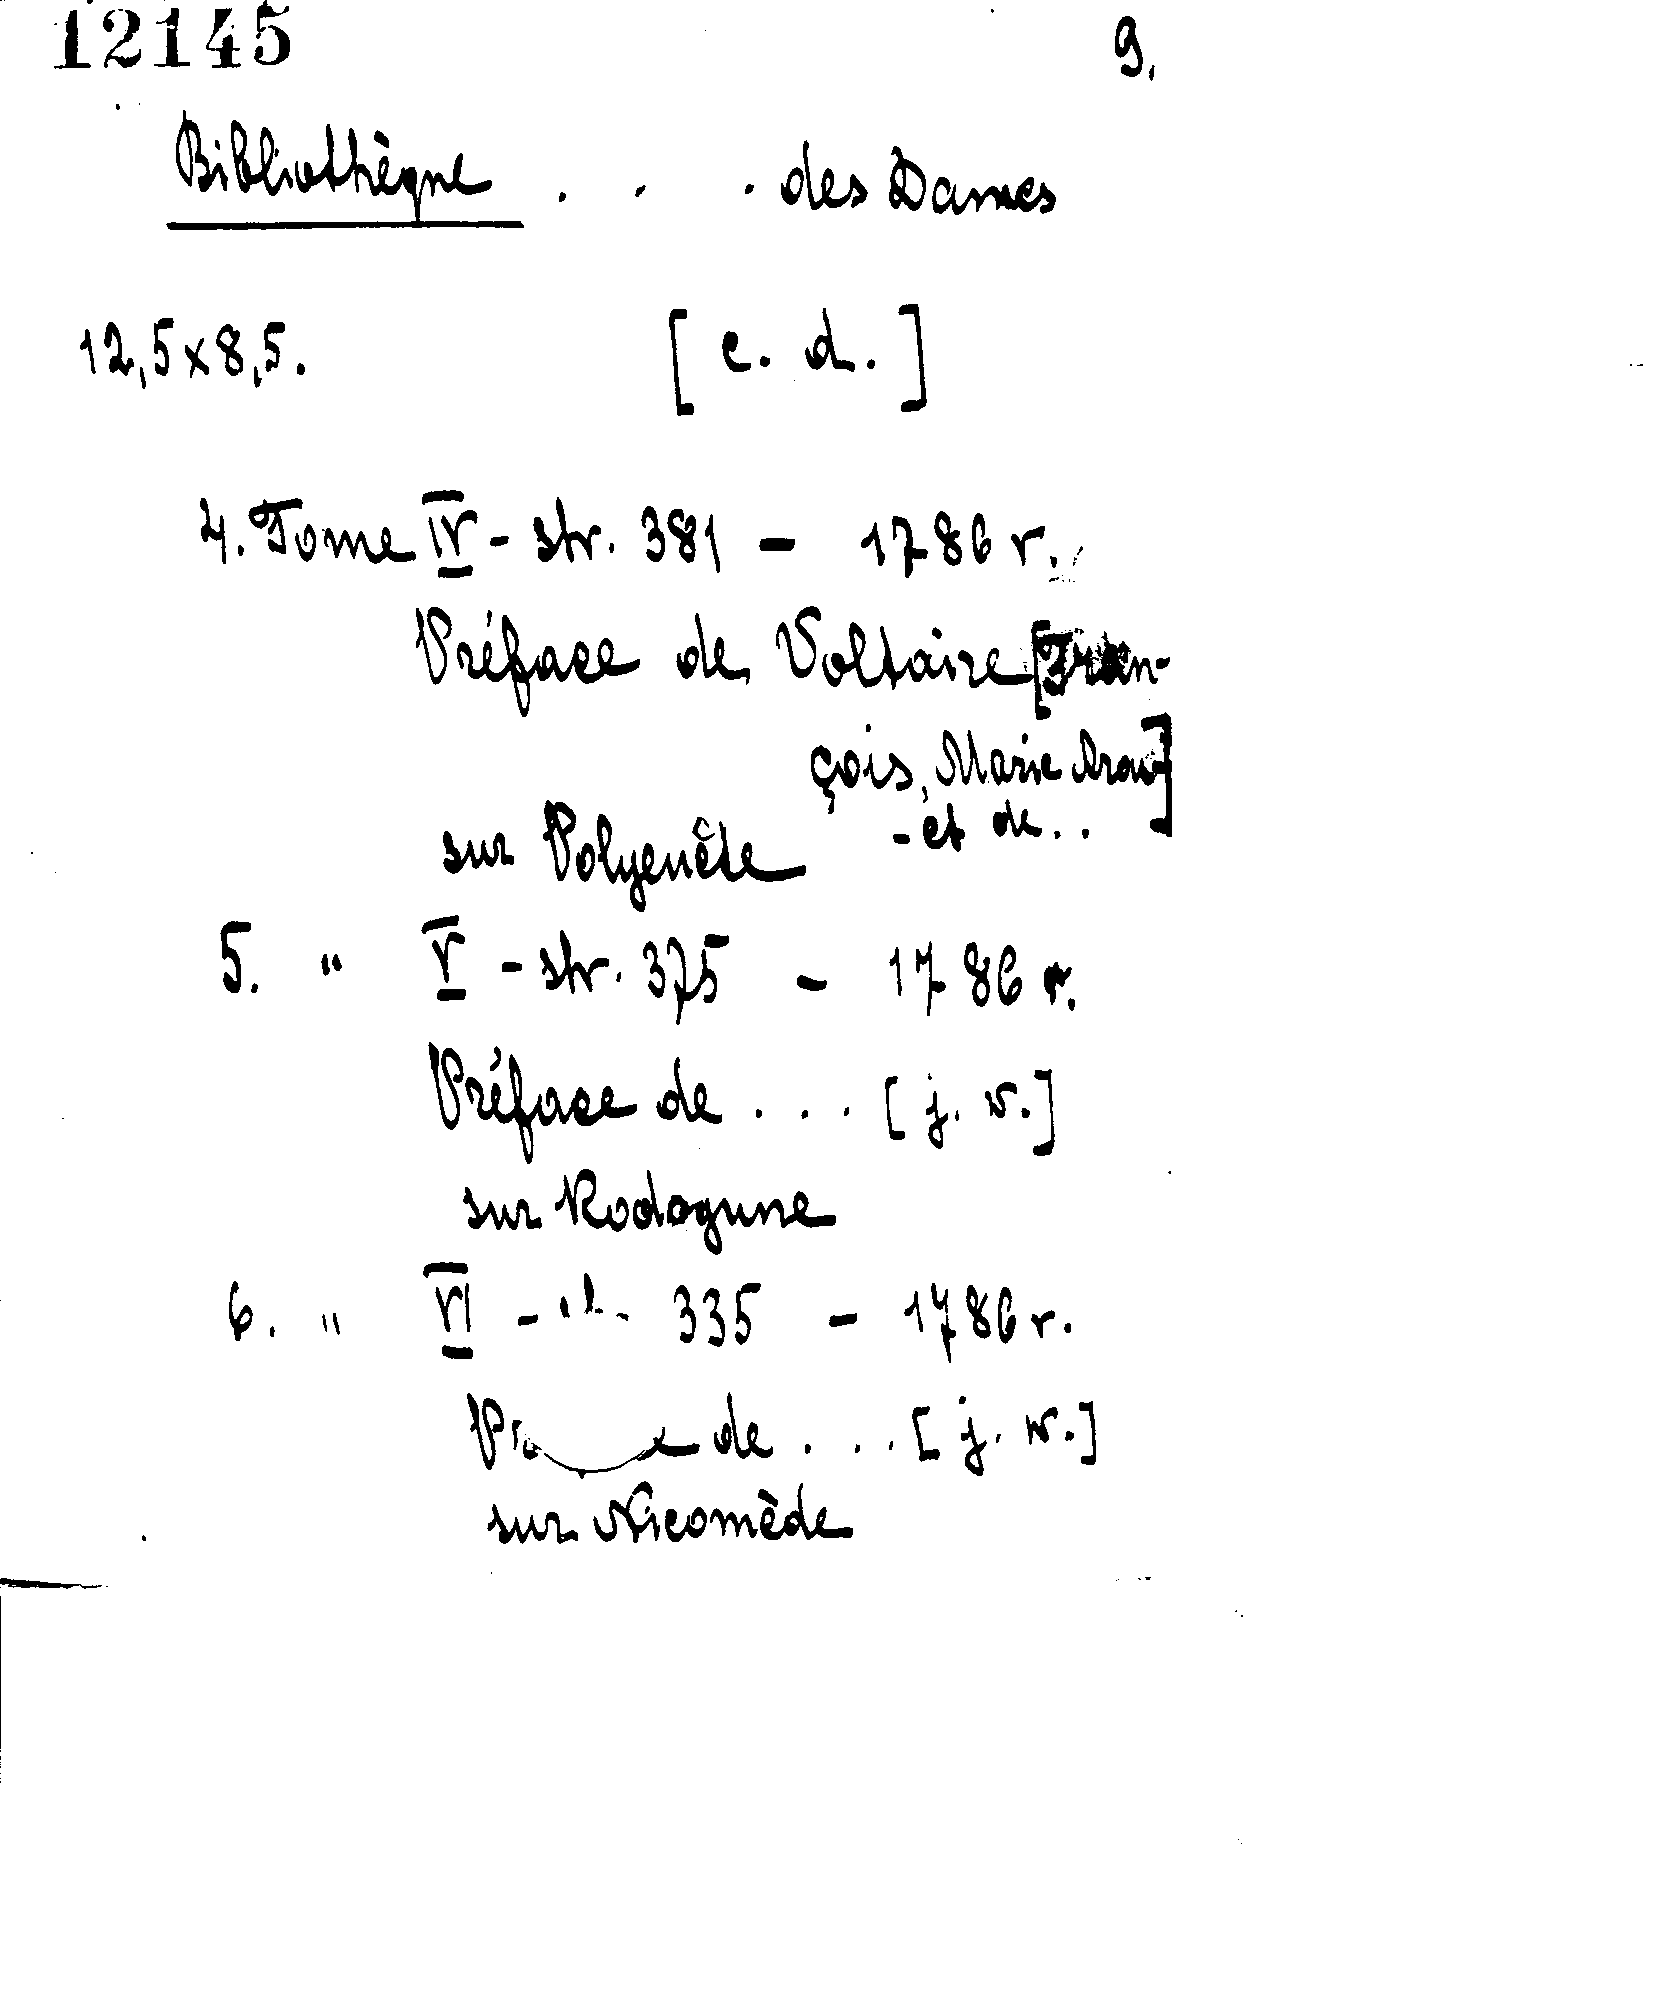 12145 9.
Bibliothèque . . . des Dames
12,5x8,5. [c. d.]
4. Tome IV - str. 381 - 1786 r.
Préface de Voltaire [Fran-
çois, Marie Arou]
- et de..
sur Polyeucte
5. " V - str. 375 - 1786 r.
Préface de . . . [j. w.]
sur Rodogune
6. " VI - " - 335 - 1786 r.
de . . . [j. w.]
sur Nicomède